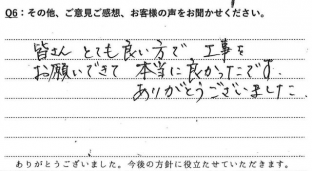 Q6：その他、ご意見ご感想、お客様の声をお聞かせください。
皆さん とても良い方で 工事を
お願いできて 本当に良かったです.
ありがとうございました
ありがとうございました。今後の方針に役立たせていただきます。